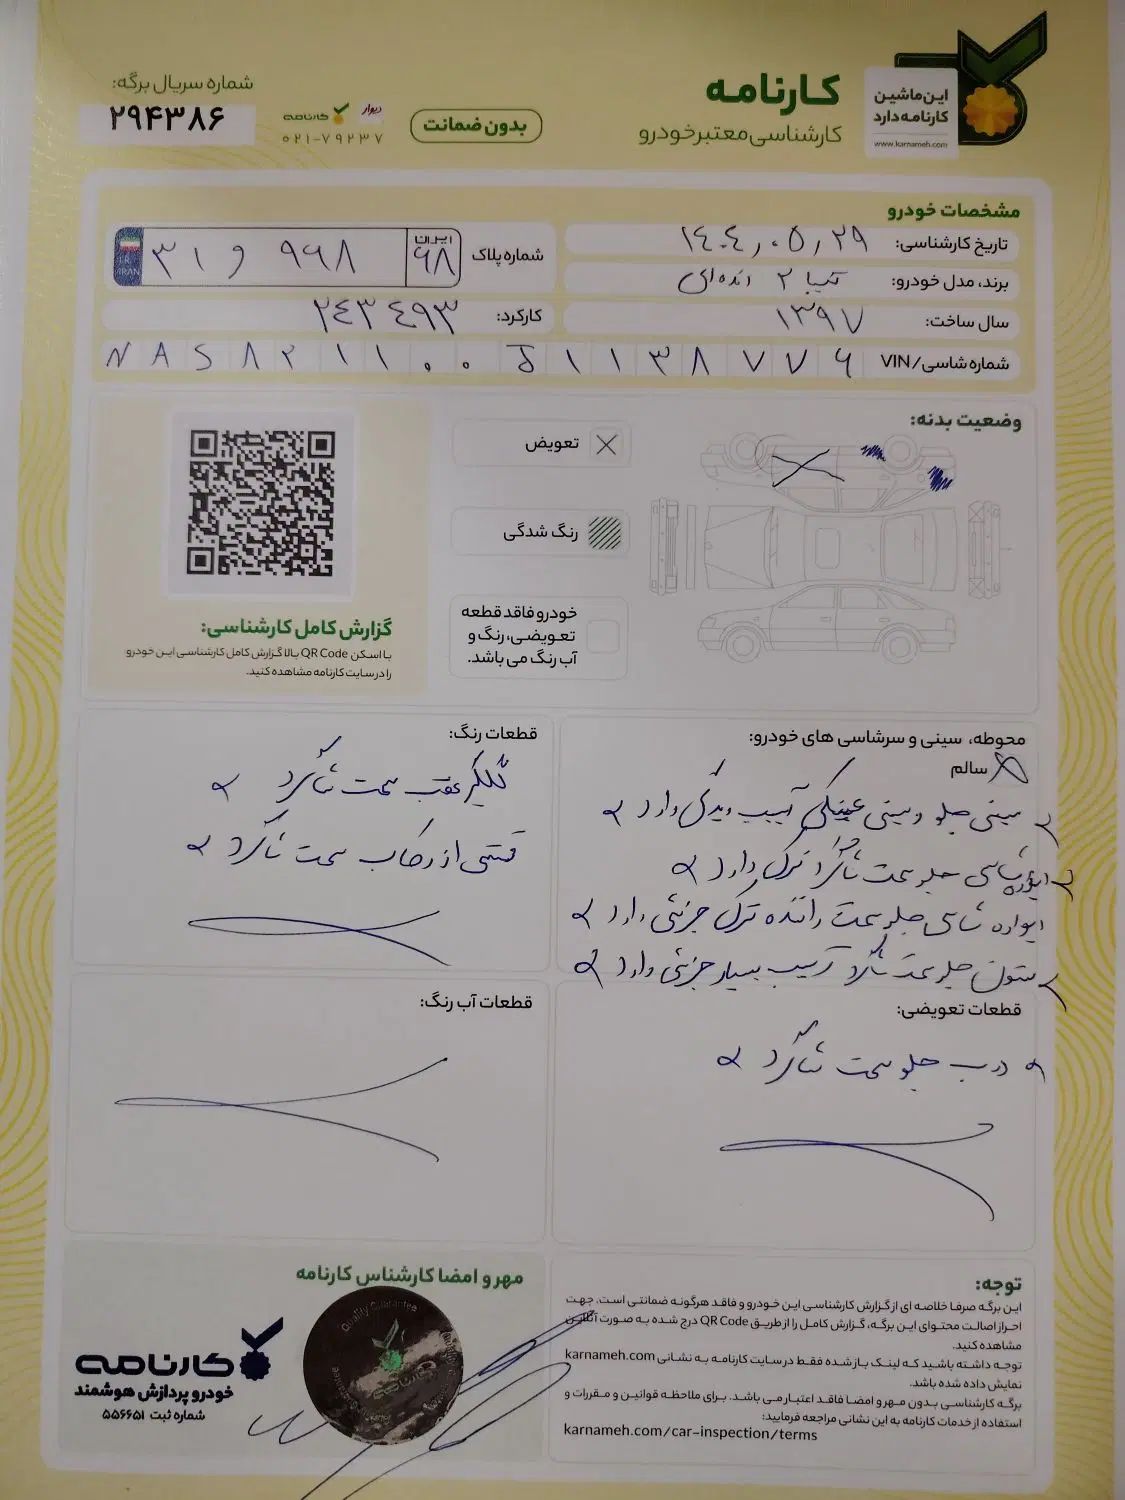 کارنامه
کارشناسی معتبر خودرو
این ماشین
کارنامه دارد
www.karnameh.com
بدون ضمانت
دیوار
کارنامه
۰۲۱-۷۹۲۳۷
شماره سریال برگه:
۲۹۴۳۸۶
مشخصات خودرو
تاریخ کارشناسی: ۱۴۰۴,۰۵,۲۹
شماره پلاک
I.R.
IRAN
۳۱ و ۹۶۸
ایران
۶۸
برند، مدل خودرو: تیبا ۲ دنده‌ای
سال ساخت: ۱۳۹۷
کارکرد: ۲۴۳۴۹۳
شماره شاسی/VIN
NAS۸۲۱۱۰۰J۱۱۳۸۷۷۶
وضعیت بدنه:
تعویض
رنگ شدگی
خودرو فاقد قطعه
تعویضی، رنگ و
آب رنگ می باشد.
گزارش کامل کارشناسی:
با اسکن QR Code بالا گزارش کامل کارشناسی این خودرو
را در سایت کارنامه مشاهده کنید.
محوطه، سینی و سرشاسی های خودرو:
سالم
سینی جلو و سینی عینکی آسیب دیدگی دارد
شاسی جلو سمت شاگرد ترک دارد
ایواره شاسی جلو سمت راننده ترک جزئی دارد
ستون جلو سمت شاگرد آسیب بسیار جزئی دارد
قطعات رنگ:
گلگیر عقب سمت شاگرد
قسمتی از رکاب سمت شاگرد
قطعات تعویضی:
درب جلو سمت شاگرد
قطعات آب رنگ:
توجه:
این برگه صرفا خلاصه ای از گزارش کارشناسی این خودرو و فاقد هرگونه ضمانتی است. جهت
احراز اصالت محتوای این برگه، گزارش کامل را از طریق QR Code درج شده به صورت آنلاین
مشاهده کنید.
توجه داشته باشید که لینک باز شده فقط در سایت کارنامه به نشانی karnameh.com
نمایش داده شده باشد.
برگه کارشناسی بدون مهر و امضا فاقد اعتبار می باشد. برای ملاحظه قوانین و مقررات و
استفاده از خدمات کارنامه به این نشانی مراجعه فرمایید:
karnameh.com/car-inspection/terms
مهر و امضا کارشناس کارنامه
Quality Guarantee
کارنامه
خودرو پردازش هوشمند
شماره ثبت ۵۵۶۶۵۱